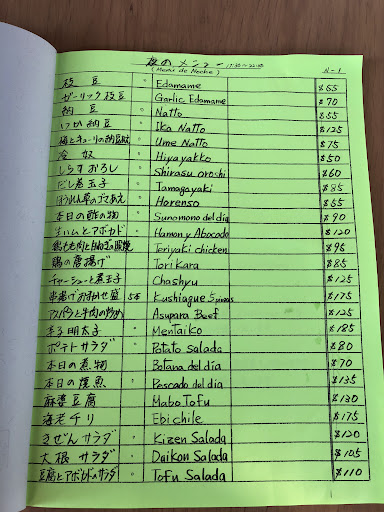 夜のメニュー 17:30~22:00
(Menú de Noche) N-1
枝豆 ° Edamame $65
ガーリック枝豆 Garlic Edamame $70
納豆 ° Natto $55
いか納豆 ° Ika Natto $125
梅とキューリの納豆和え ° Ume Natto $75
冷奴 ° Hiyayakko $50
しらすおろし ° Shirasu oroshi $60
だし巻玉子 ° Tamagoyaki $85
ほうれん草のごまあえ ° Horenso $65
本日の酢の物 ° Sunomono del día $90
生ハムとアボカド ° Hamon y Abocado $120
鶏もも肉と白ねぎの照焼 Teriyaki chicken $95
鶏の唐揚げ ° Tori Kara $85
チャーシューと煮玉子 ° Chashyu $125
串揚げおまかせ盛 5本 Kushiague 5 piezas $175
アスパラと牛肉の炒め ° Asupara Beef $125
辛子明太子 ° Mentaiko $185
ポテトサラダ ° Potato Salada $80
本日の煮物 ° Botana del día $70
本日の焼魚 ° Pescado del día $135
麻婆豆腐 Mabo Tofu $130
海老チリ Ebi chile $175
きぜんサラダ ° Kizen Salada $120
大根サラダ ° Daikon Salada $105
豆腐とアボカドのサラダ ° Tofu Salada $110